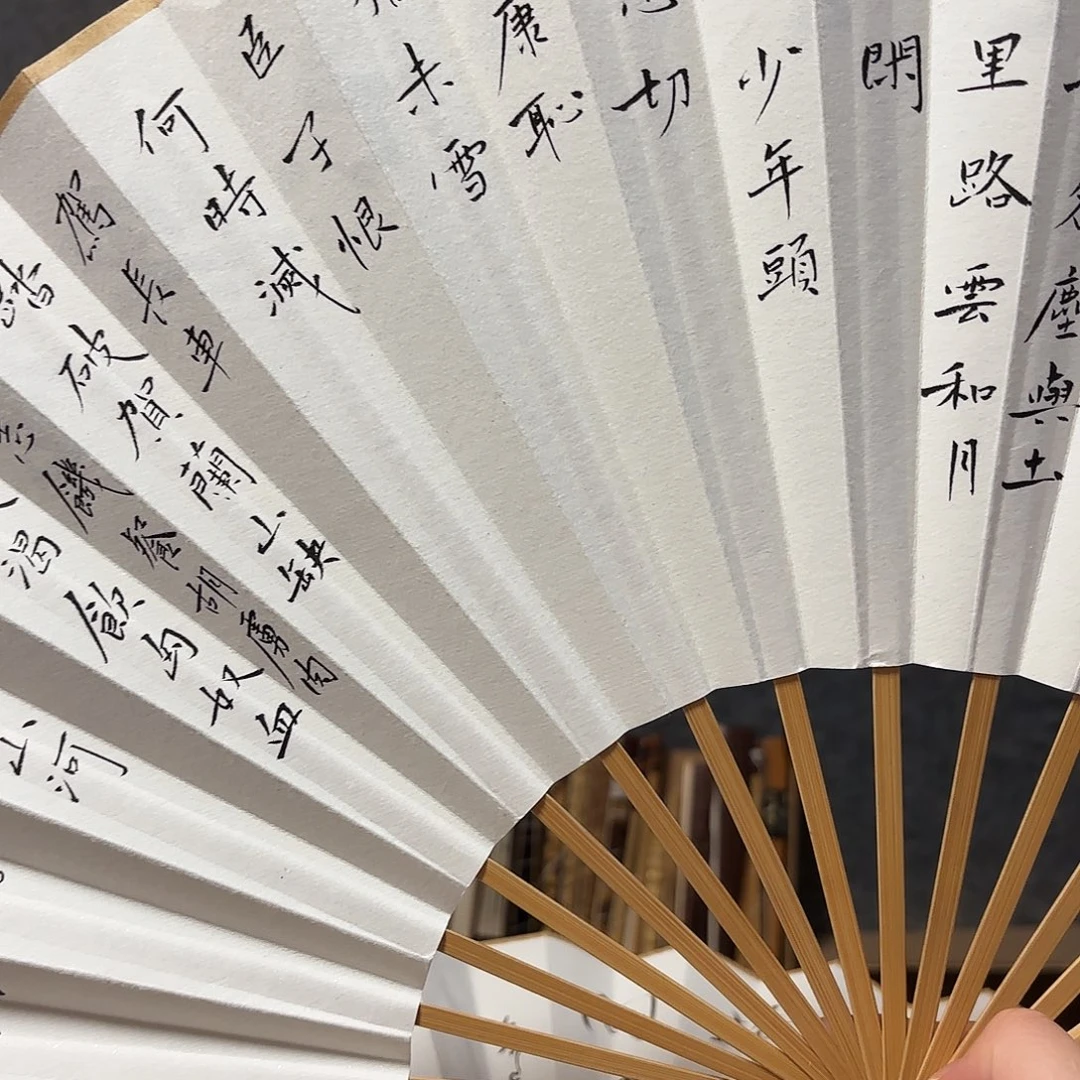 塵與土
里路雲和月
閒
少年頭
切
康恥
未雪
臣子恨
何時滅
駕長車
踏破賀蘭山缺
饑餐胡虜肉
渴飲匈奴血
山河